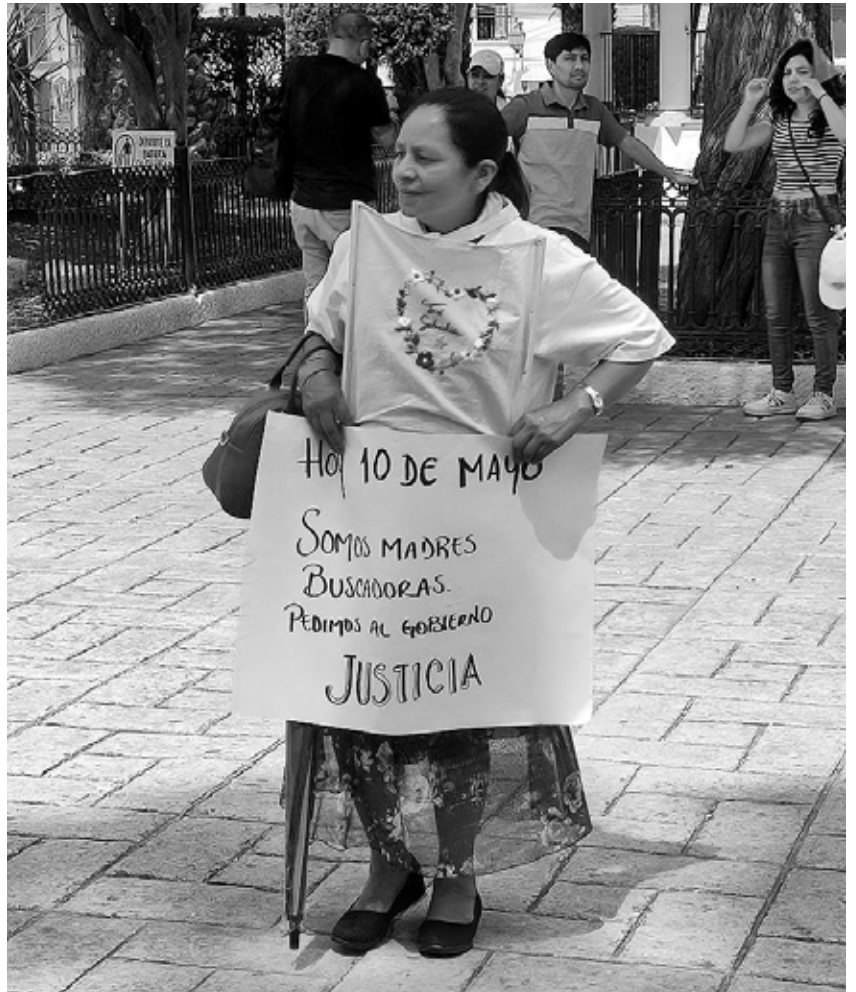 Hoy 10 DE MAYO
SOMOS MADRES
BUSCADORAS.
PEDIMOS AL GOBIERNO
JUSTICIA